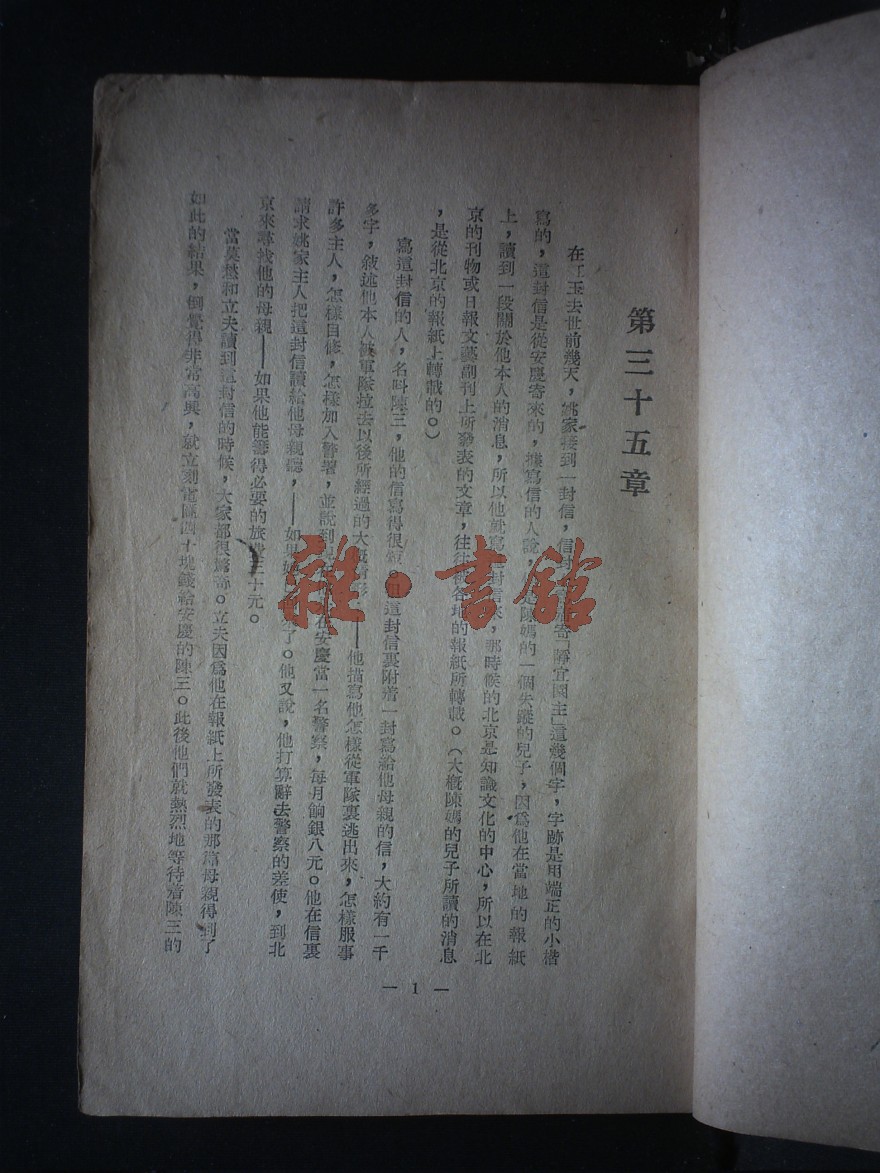 第三十五章
在玉去世前幾天，姚家接到一封信，信封寄「靜宜園主」這幾個字，字跡是用端正的小楷
寫的，這封信是從安慶寄來的，據寫信的人說，是陳媽的一個失蹤的兒子，因爲他在當地的報紙
上，讀到一段關於他本人的消息，所以他就寫封信來，那時候的北京是知識文化的中心，所以在北
京的刊物或日報文藝副刊上所發表的文章，往往被各地的報紙所轉載。（大概陳媽的兒子所讀的消息
，是從北京的報紙上轉載的。）
寫這封信的人，名叫陳三，他的信寫得很。這封信裏附着一封寫給他母親的信，大約有一千
多字，敍述他本人被軍隊拉去以後所經過的大概——他描寫他怎樣從軍隊裏逃出來，怎樣服事
許多主人，怎樣自修，怎樣加入警署，並說到在安慶當一名警察，每月餉銀八元。他在信裏
請求姚家主人把這封信讀給他母親聽，——如果了。他又說，他打算辭去警察的差使，到北
京來尋找他的母親——如果他能籌得必要的旅費三十元。
當莫愁和立夫讀到這封信的時候，大家都很驚奇。立夫因爲他在報紙上所發表的那篇母親得到了
如此的結果，倒覺得非常高興，就立刻電匯四十塊錢給安慶的陳三。此後他們就熱烈地等待着陳三的
— 1 —
雜·書館